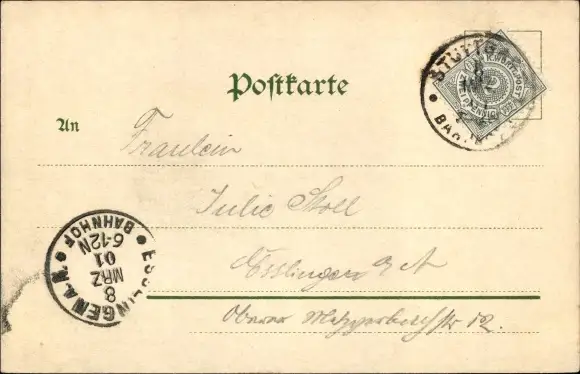 Postkarte
STUTTG
BAH
An
Fräulein
Julie Stoll
Esslingen a/N
Oberer Metzgerbachstr 12.
ESSLINGEN A.N.
8
MRZ
01
6-12N
BAHNHOF